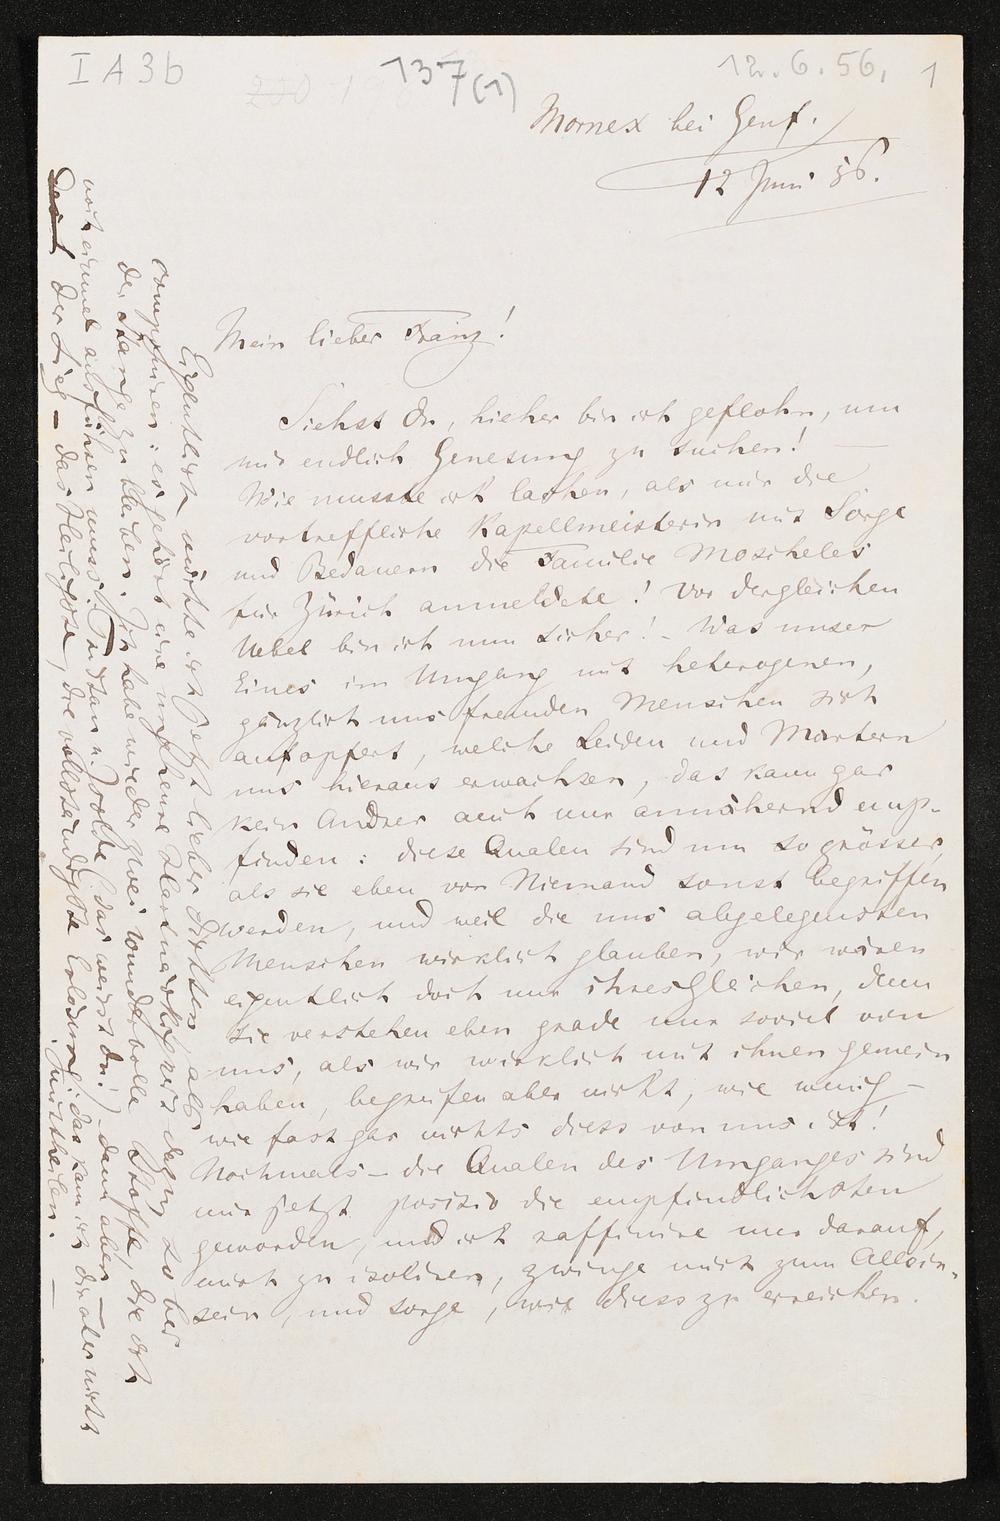 I A 3b
137(1)
12. 6. 56. 1
Mornex bei Genf.
12 Juni 56.
Mein lieber Franz!
Siehst Du, hieher bin ich geflohn, um
mir endlich Genesung zu suchen! —
Wie musste ich lachen, als mir die
vortreffliche Kapellmeisterin mit Sorge
und Bedauern die Familie Moscheles
für Zürich anmeldete! Vor dergleichen
Uebel bin ich nun sicher! – Was unser
Eines im Umgang mit heterogenen,
gänzlich uns fremden Menschen sich
aufopfert, welche Leiden und Martern
uns hieraus erwachsen, das kann gar
kein Andrer auch nur annähernd emp-
finden: diese Qualen sind um so grösser,
als sie eben von Niemand sonst begriffen
werden, und weil die uns abgelegensten
Menschen wirklich glauben, wir wären
eigentlich doch nur ihresGleichen, denn
sie verstehen eben grade nur soviel von
uns, als wir wirklich mit ihnen gemein
haben, begreifen aber nicht, wie wenig –
wie fast gar nichts diess von uns ist!
Nochmals – die Qualen des Umganges sind
mir jetzt positiv die empfindlichsten
geworden, und ich raffinire nur darauf,
mich zu isoliren, zwinge mich zum Allein-
sein, und sorge, mir diess zu erreichen.
Eigentlich möchte ich jetzt lieber dichten als
componiren: es gehört eine ungeheure Hartnäckigkeit dazu, so bei
der Stange zu bleiben. Ich habe wieder zwei wundervolle Stoffe, die ich
noch einmal ausführen muss: Tristan u. Isolde (das weisst du!) – dann aber –
der Sieg – das Heiligste, die vollständigste Erlösung: das kann ich dir aber nicht
mittheilen. —